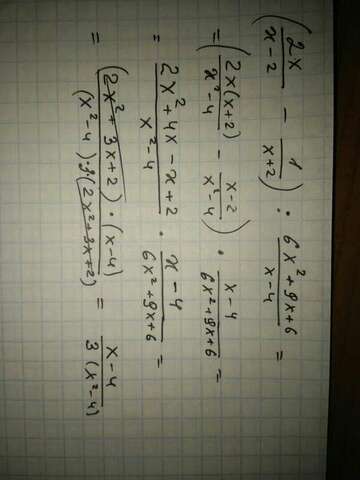 (2x/(x-2) - 1/(x+2)) : (6x²+9x+6)/(x-4) =
= (2x(x+2)/(x²-4) - (x-2)/(x²-4)) · (x-4)/(6x²+9x+6) =
= (2x²+4x-x+2)/(x²-4) · (x-4)/(6x²+9x+6) =
= ((2x²+3x+2)·(x-4))/((x²-4)·3(2x²+3x+2)) = (x-4)/(3(x²-4))